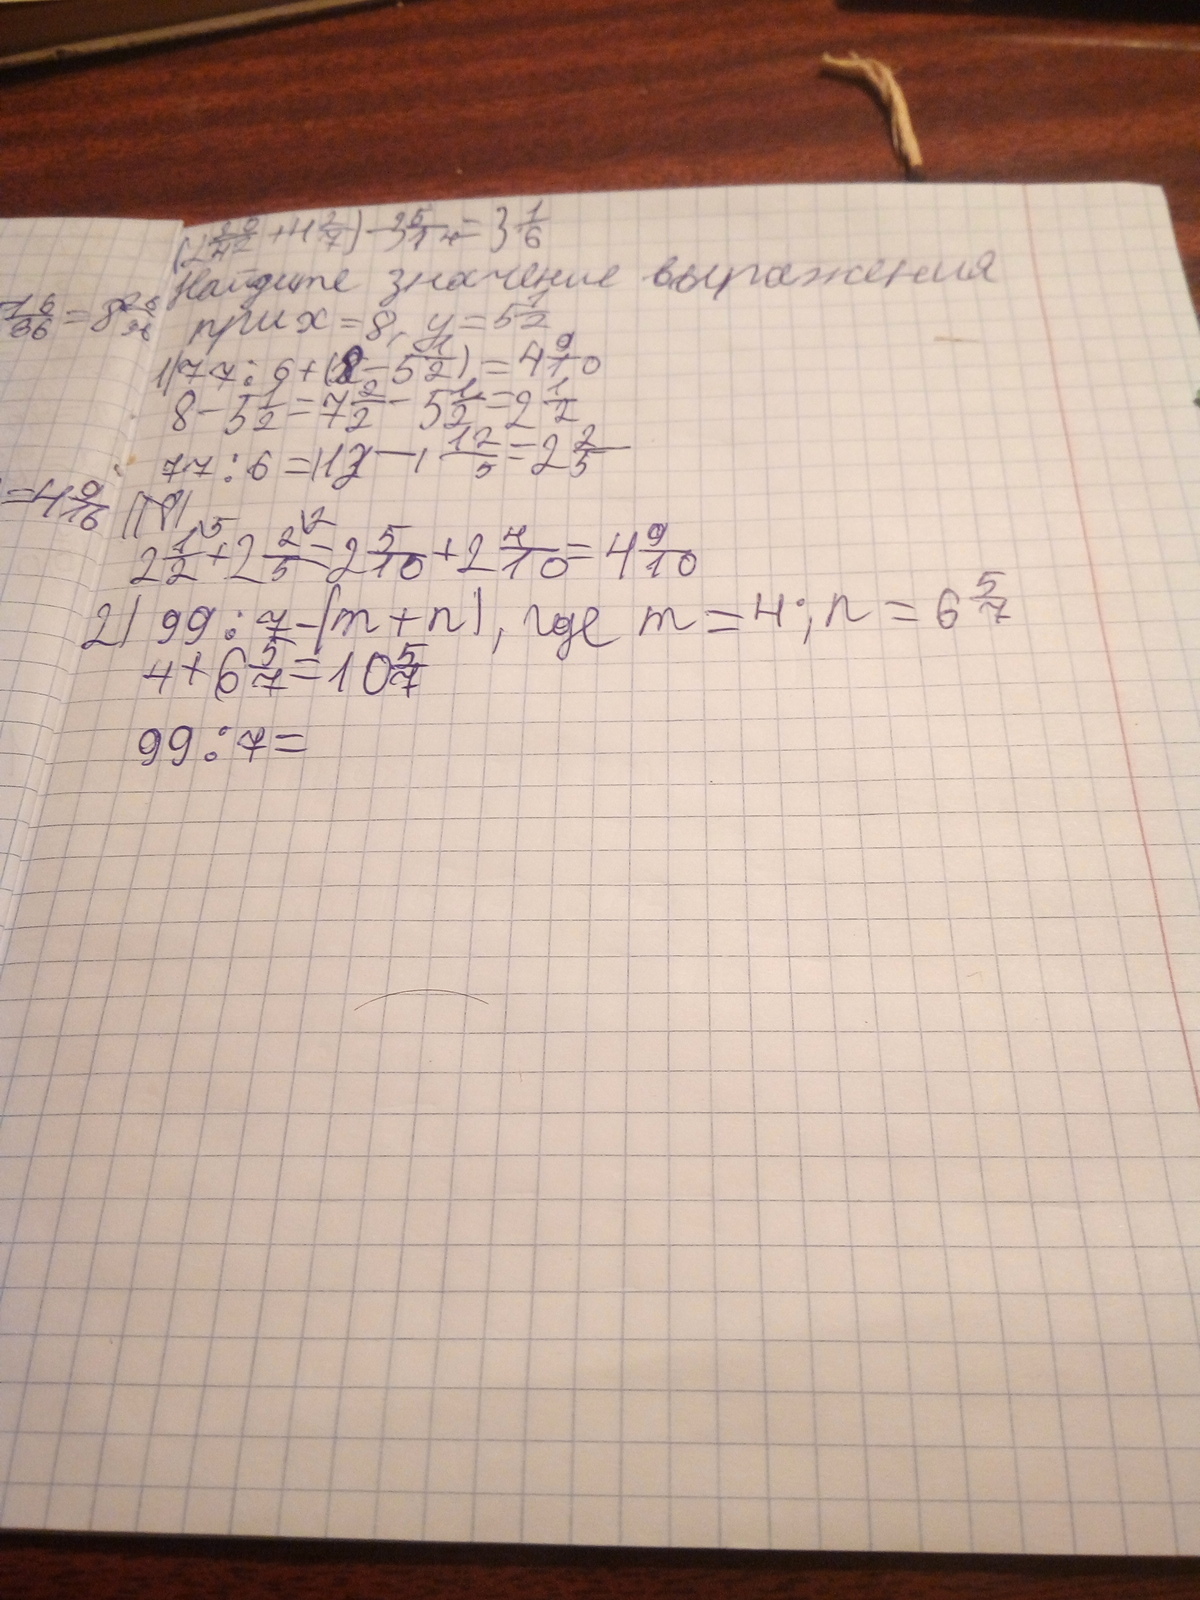 (2 20/42 + 4 2/7) - 3 5/14 = 3 1/6
Найдите значение выражения
при x = 8, y = 5 1/2
1) 77 : 6 + (8 - 5 1/2) = 4 9/10
8 - 5 1/2 = 7 2/2 - 5 1/2 = 2 1/2
77 : 6 = 12/5 = 2 2/5
= 4 9/16
2 1/2 \5 + 2 2/5 \2 = 2 5/10 + 2 4/10 = 4 9/10
2) 99 : 7 - (m + n), где m = 4; n = 6 5/7
4 + 6 5/7 = 10 5/7
99 : 7 =